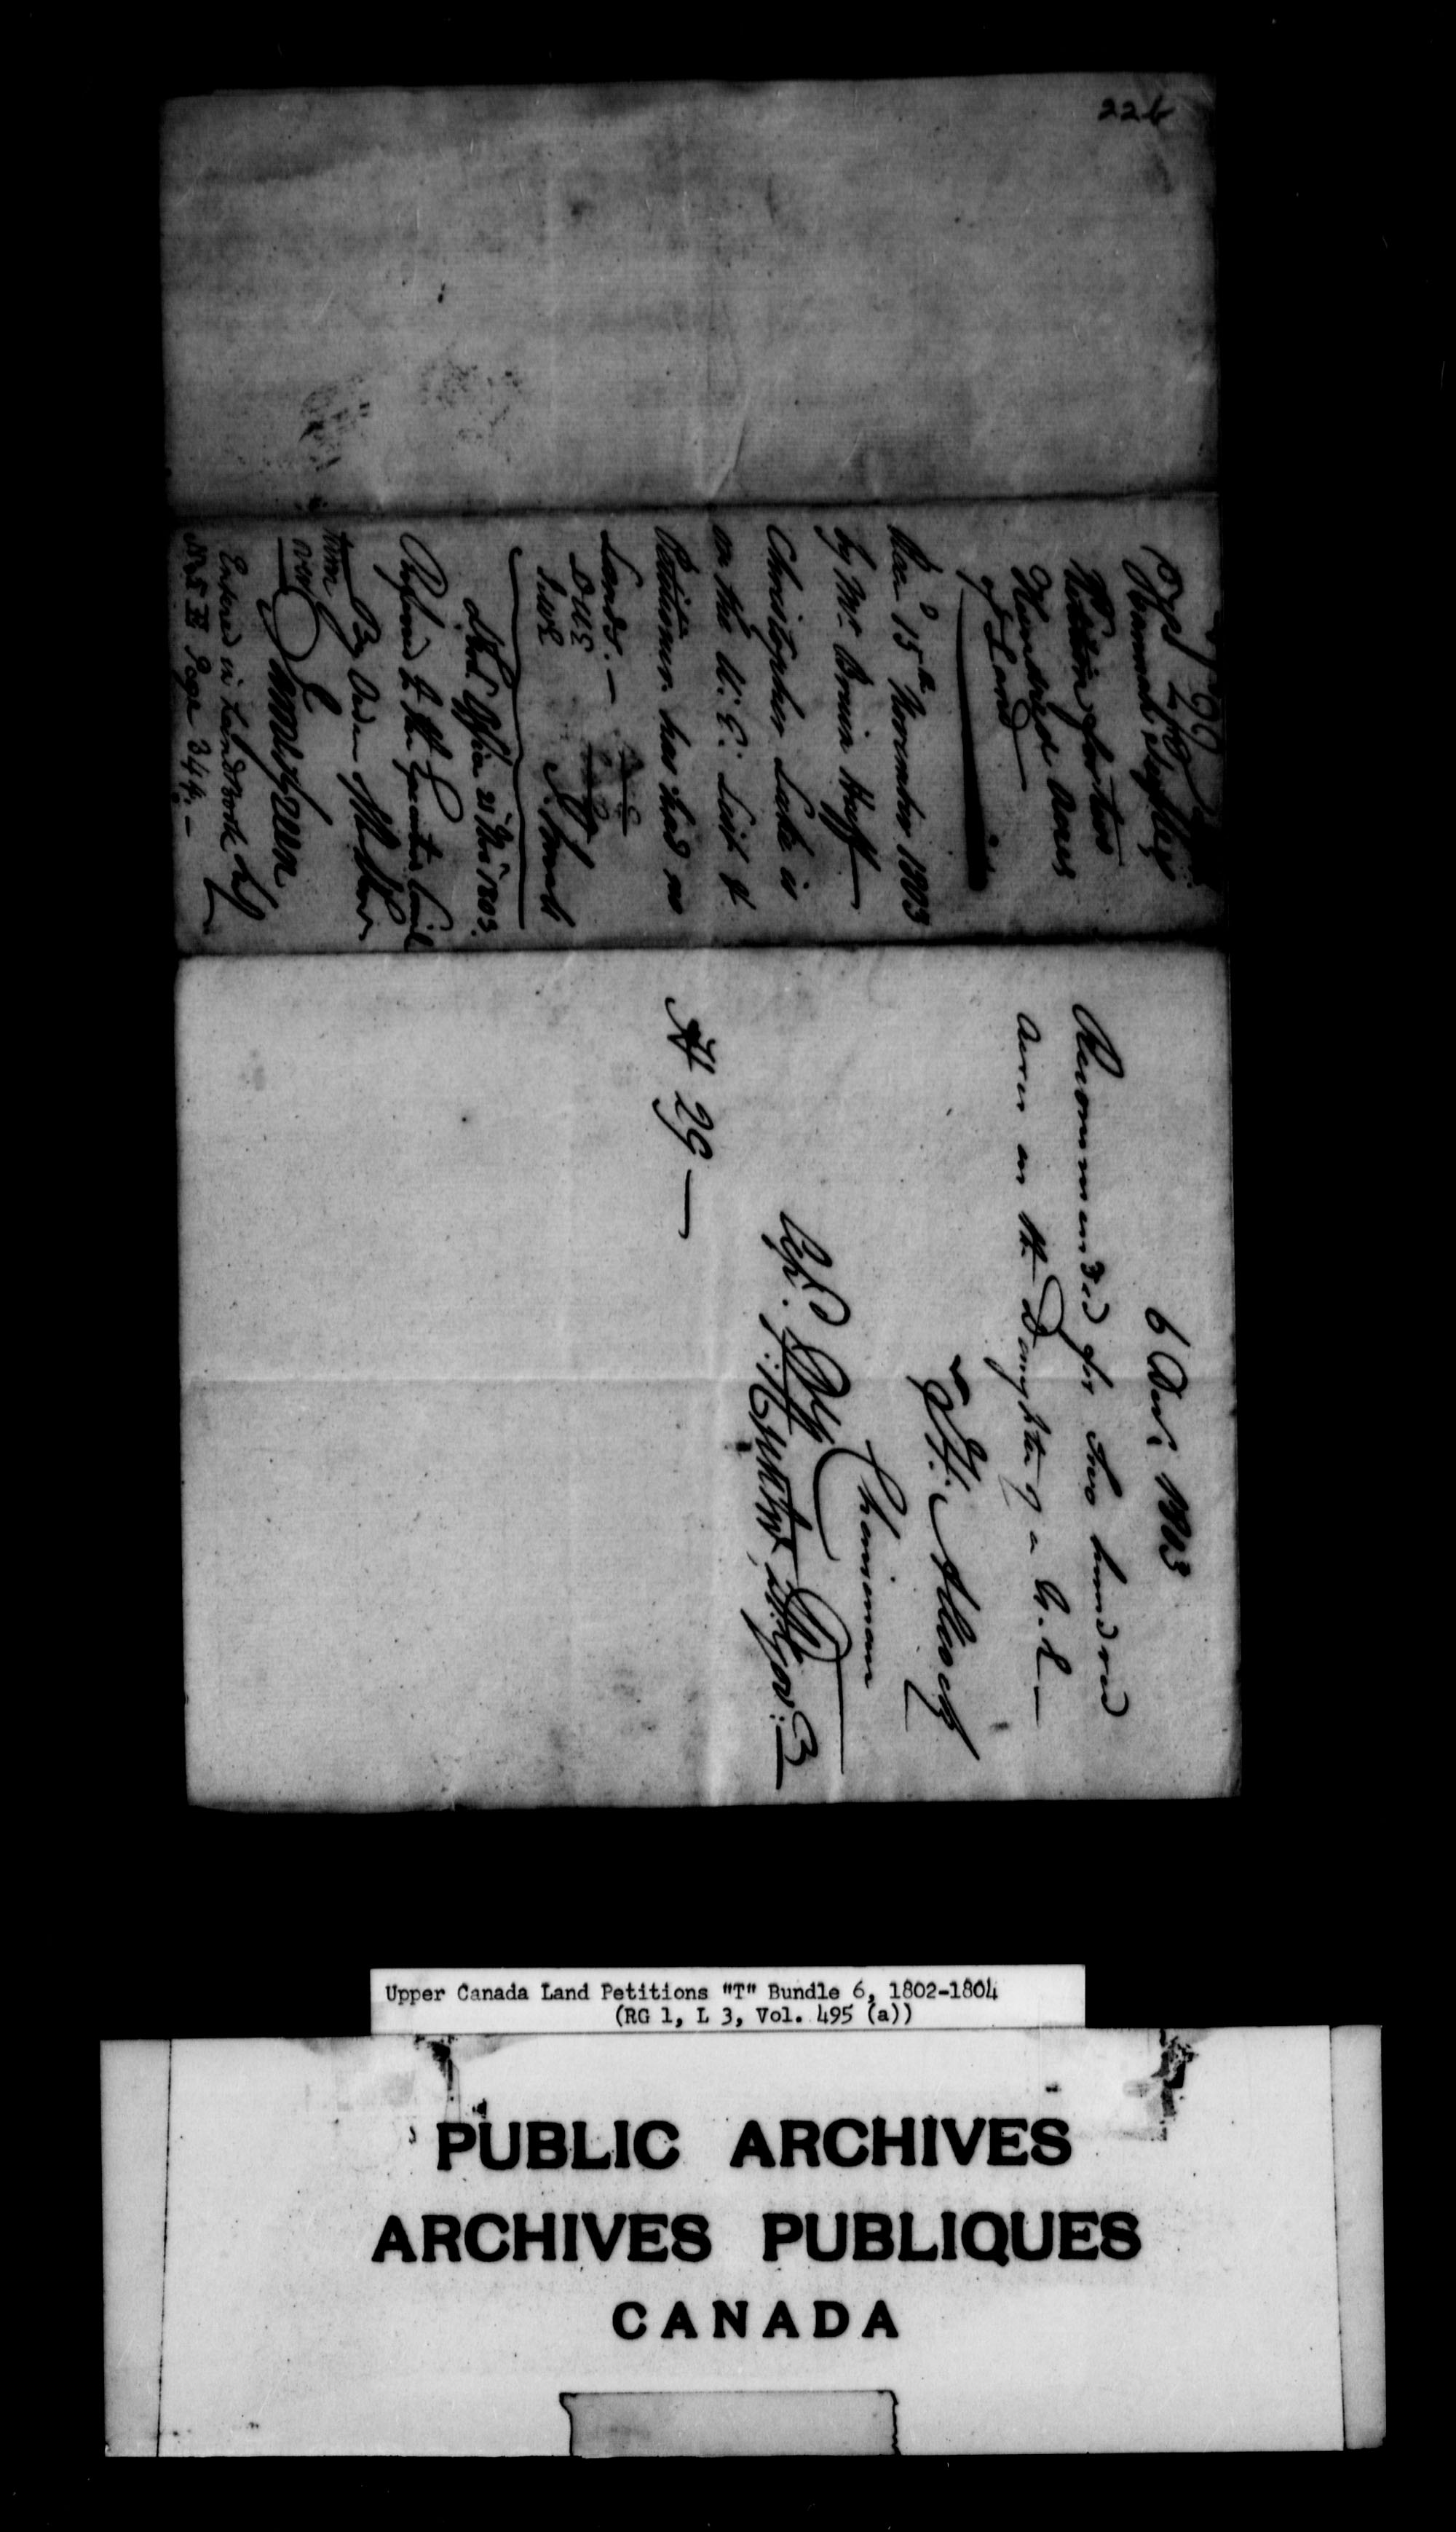 226
Hannah
Petition for two
Hundred Acres
of Land
Rec'd 15th November 1803
by Mr. Bruin Huff
Christopher Lake is
on the U. E. List &
Petitioner has had no
Lands. —
DWS
D. Smith
Referred to the Executive Council
By Order
Green
Entered in Land Book
Page 344. —
6 Dec. 1803
Recommended for two hundred
Acres as the Daughter of a U. E —
H. Allcock
Chairman
P. Hunter Lt. Gov:
N 29 —
Upper Canada Land Petitions "T" Bundle 6, 1802-1804
(RG 1, L 3, Vol. 495 (a))
PUBLIC ARCHIVES
ARCHIVES PUBLIQUES
CANADA